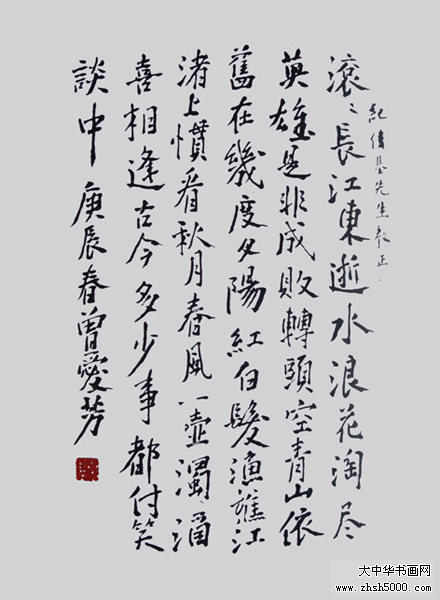 先生教正
滾〻長江東逝水浪花淘尽
英雄是非成敗轉頭空青山依
舊在幾度夕陽紅白髮漁樵江
渚上慣看秋月春風一壺濁酒
喜相逢古今多少事都付笑
談中 庚辰春曾愛芳
大中华书画网
www.zhsh5000.com